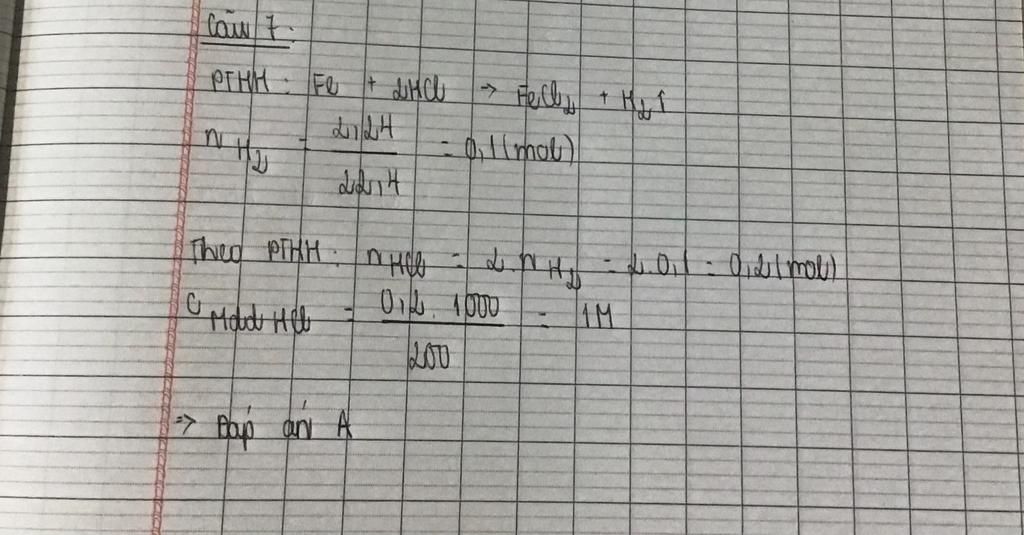 Câu 7:
PTHH: Fe + 2HCl → FeCl₂ + H₂↑
n H₂ = 2,24 / 22,4 = 0,1 (mol)
Theo PTHH: nHCl = 2. n H₂ = 2. 0,1 = 0,2 (mol)
C Mdd HCl = 0,2. 1000 / 200 = 1M
=> Đáp án A